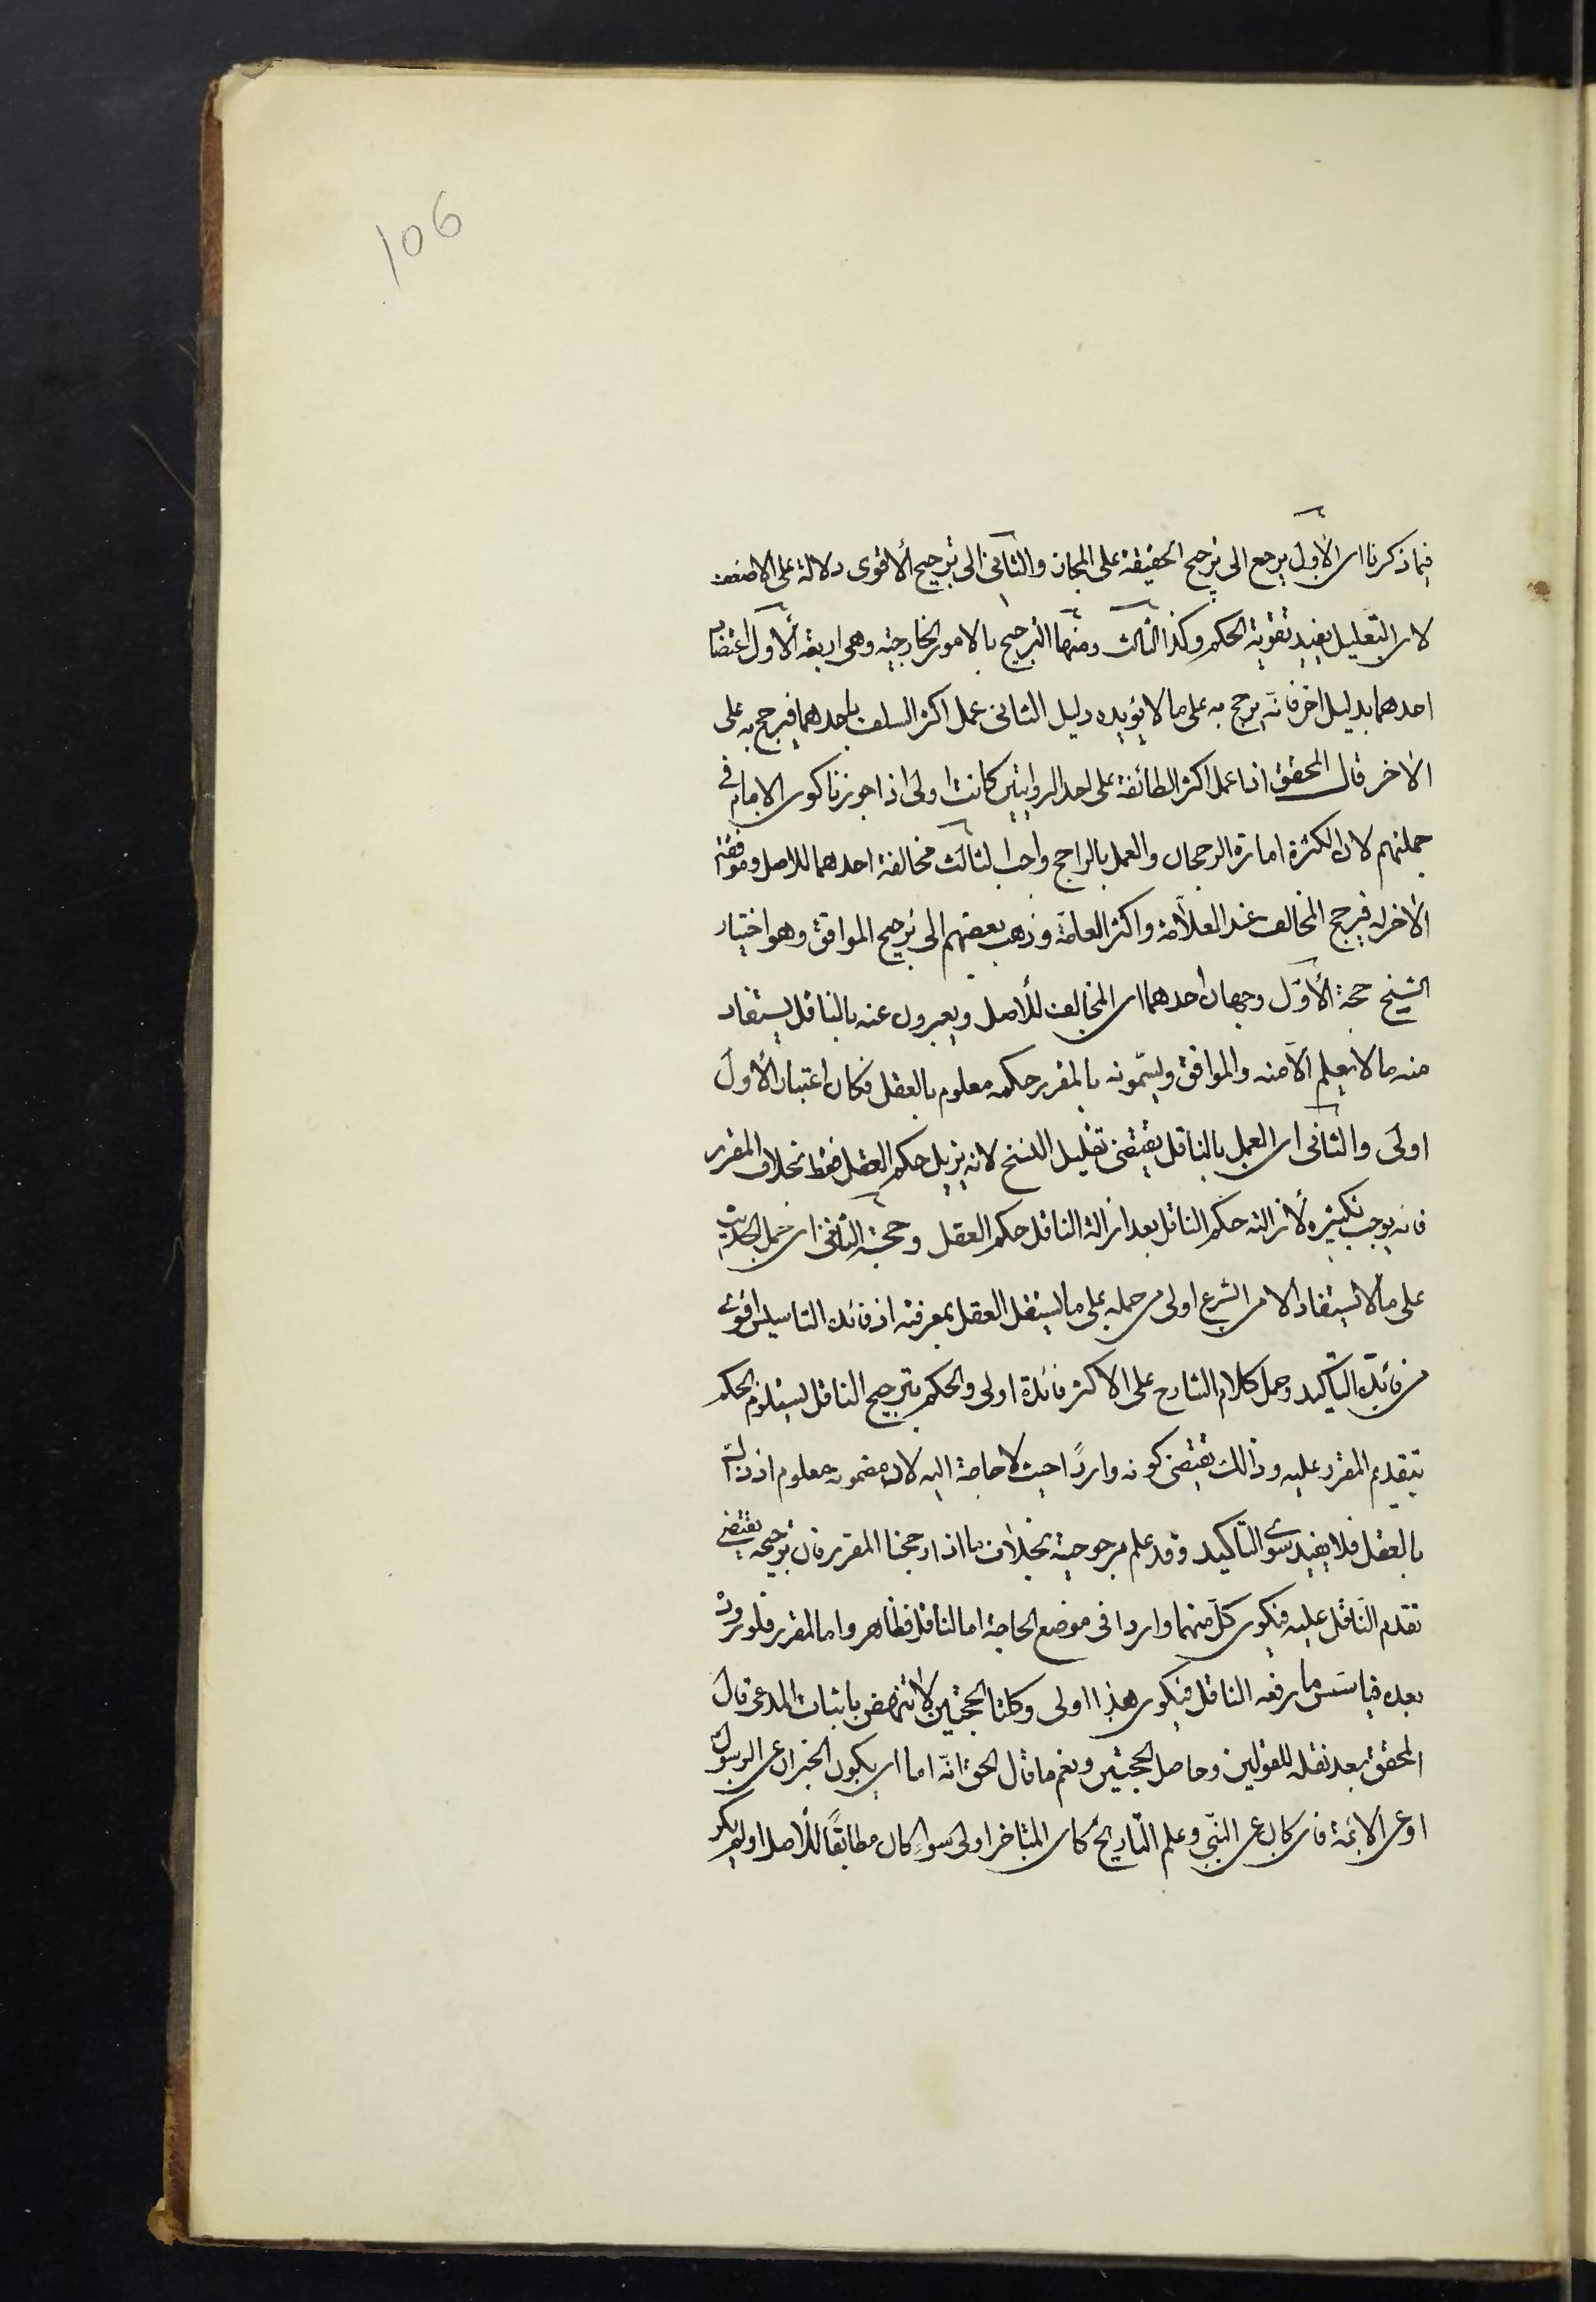 106
فيما ذكرنا اى الاول يرجع الى ترجيح الحقيقة على المجاز والثانى الى ترجيح الأقوى دلالة على الاضعف
لان التعليل يفيد تقوية الحكم وكذا الثالث ومنها الترجيح بالامور الخارجيّه وهى اربعة الأول اعتضاد
احدهما بدليل اخر فانّه يرجح به على ما لا يؤيده دليل الثانى عمل اكثر السلف باحدهما فيرجح به على
الاخر قال المحقق اذا عمل اكثر الطائفة على احد الروايتين كانت اولى اذا جوزنا كون الامام فى
جملتهم لان الكثرة امارة الرجحان والعمل بالراجح واجب الثالث مخالفة احدهما للاصل وموافقة
الاخر له فيرجح المخالف عند العلاّمة واكثر العامّة وذهب بعضهم الى ترجيح الموافق وهو اختيار
الشيخ حجة الأوّل وجهان احدهما ان المخالف للأصل ويعبرون عنه بالناقل يستفاد
منه ما لا يعلم الاّ منه والموافق ويسمّونه بالمقرر حكمه معلوم بالعقل فكان اعتبار الأول
اولى والثانى ان العمل بالناقل يقتضى تقليل النسخ لانه يزيل حكم العقل فقط بخلاف المقرر
فانه يوجب تكثيره لأزالته حكم الناقل بعد ازالة الناقل حكم العقل وحجة الثانى ان حمل الحديث
على ما لا يستفاد الا من الشرع اولى من حمله على ما يستقل العقل بمعرفته اذ فائدة التاسيس اقوى
من فائدة التأكيد وحمل كلام الشارع على الاكثر فائدة اولى والحكم بترجيح الناقل يستلزم الحكم
بتقديم المقرر عليه وذالك يقتضى كونه وارداً حيث لا حاجة اليه لان مضمونه معلوم اذ ذاك
بالعقل فلا يفيد سوى التاكيد وقد علم مرجوحيته بخلاف ما اذا رجحنا المقرر فان ترجيحه يقتضى
تقدم النّاقل عليه فيكون كلّ منهما واردا فى موضع الحاجة اما الناقل فظاهر واما المقرر فلوروده
بعده فياسّس ما رفعه الناقل فيكون هذا اولى وكلتا الحجتين لا تنهض باثبات المدعى قال
المحقق بعد نقله للقولين وحاصل الحجتين ونعم ما قال الحق انّه اما ان يكون الخبران عن الرسول
او عن الائمة فان كان عن النبّى وعلم التّاريخ كان المتاخر اولى سواء كان مطابقاً للأصل او لم يكن